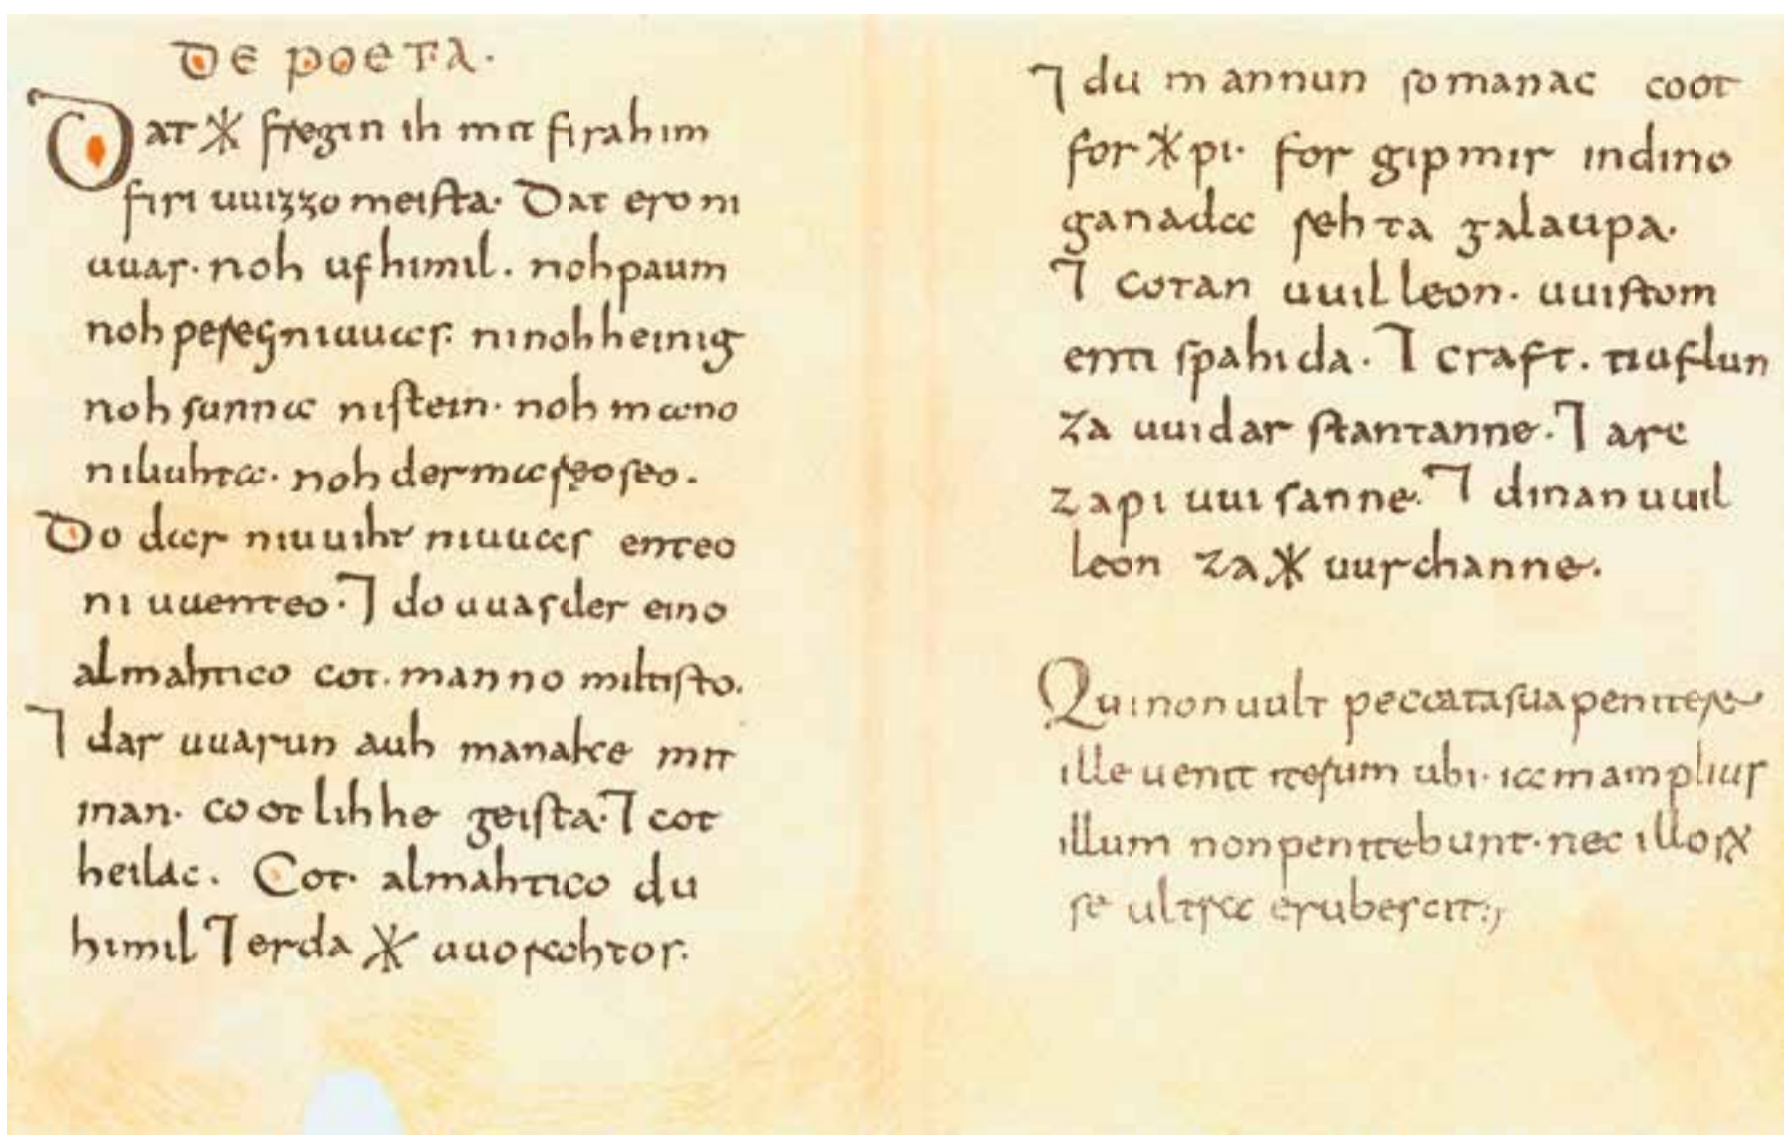 DE POETA·
Dat ᚷ fregin ih mit firahim
firi uuizzo meista· Dat ero ni
uuas· noh ufhimil· noh paum
noh peregniuuas· ninohheinig
noh sunna nistein· noh mano
niliuhta· noh dermareoseo·
Do dar niuuiht niuuas enteo
ni uuenteo· ⁊ do uuasder eino
almahtico cot· manno miltisto·
⁊ dar uuarun auh manake mit
inan· cootlihhe geista· ⁊ cot
heilac· Cot· almahtico du
himil ⁊ erda ᚷ uuorahtos·
⁊ du mannun somanac coot
forᚷpi· for gipmir indino
ganada rehta galaupa·
⁊ cotan uuilleon· uuistom
enti spahida· ⁊ craft· tiuflun
za uuidar stantanne· ⁊ arc
zapi uuisanne· ⁊ dinan uuil
leon za ᚷ uurchanne·
Qui non uult peccata sua penitere
ille uenit iterum ubi· iam amplius
illum non penitebunt· nec illorꝝ
se ultra erubescit·,